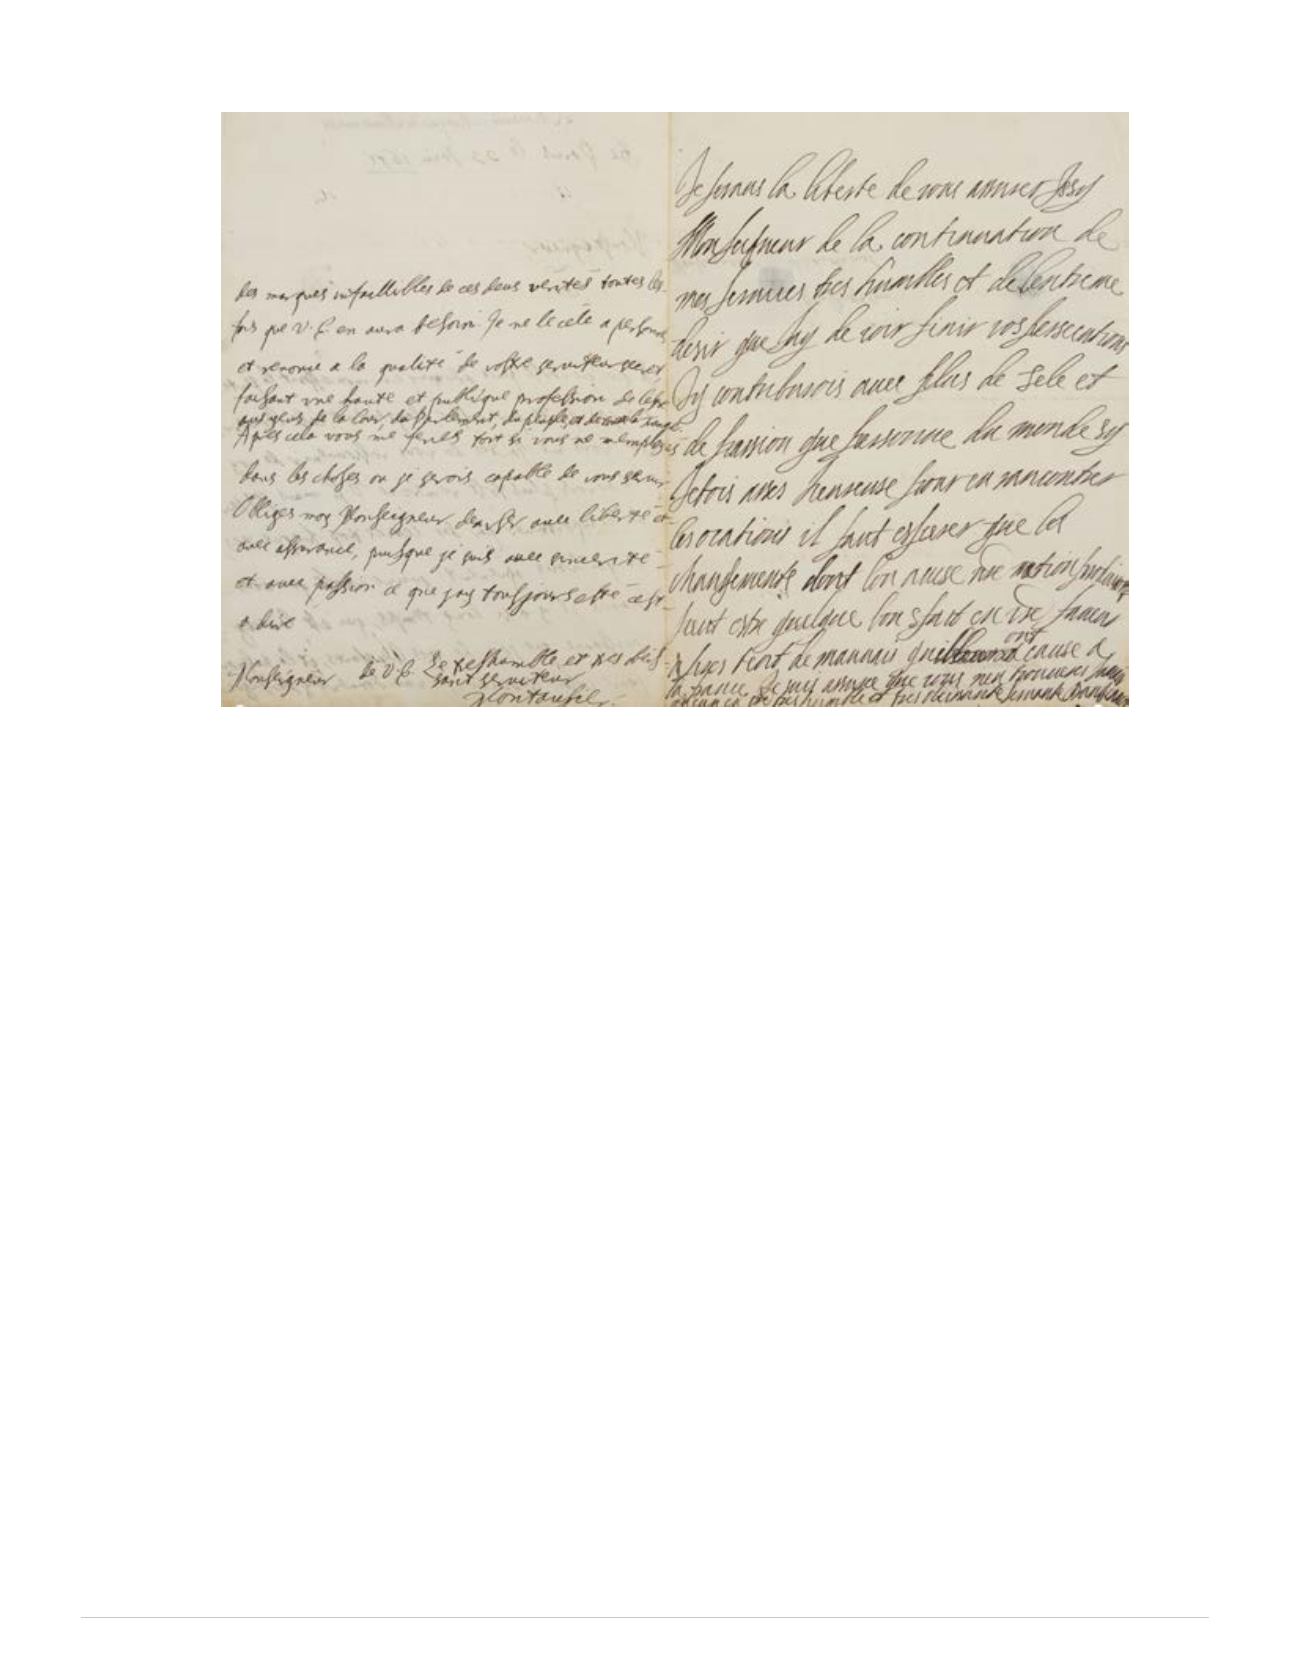 des marques infaillibles de ces deus verités toutes les
fois que V. E. en aura besoin. Je ne le cele a personne
et renonce a la qualité de vostre serviteur secret,
faisant une haute et publique profession de l'estre
aus yeus de la Cour, du Parlement, du peuple, et de
Apres cela vous me feriés tort si vous ne m'emploiés
dans les choses ou je serois capable de vous servir
Obliges moy Monseigneur d'en user avec liberté et
avec assurance, puisque je suis avec sincerité
et avec passion ce que j'ay tousjours esté c'est
a dire
Monseigneur de V. E. Le tres humble et tres obeis-
sant serviteur
Montausier
Je prenas la liberte de vous assurer Issy
Monseigneur de la continuation de
mes services tres humbles et de lentreme
desir que jay de voir finir vos persecutions
Jy contriburois avec plus de zele et
de passion que personne du monde sy
Jetois asses heureuse pour en rancontrer
les ocations il faut esperer que les
changements dont lon acuse nre nation
faut estre quelque bon efaict en vre faveur
apres tent de mauvais ont cause a
la france Je suis assuree que vous nen trouveres jamais